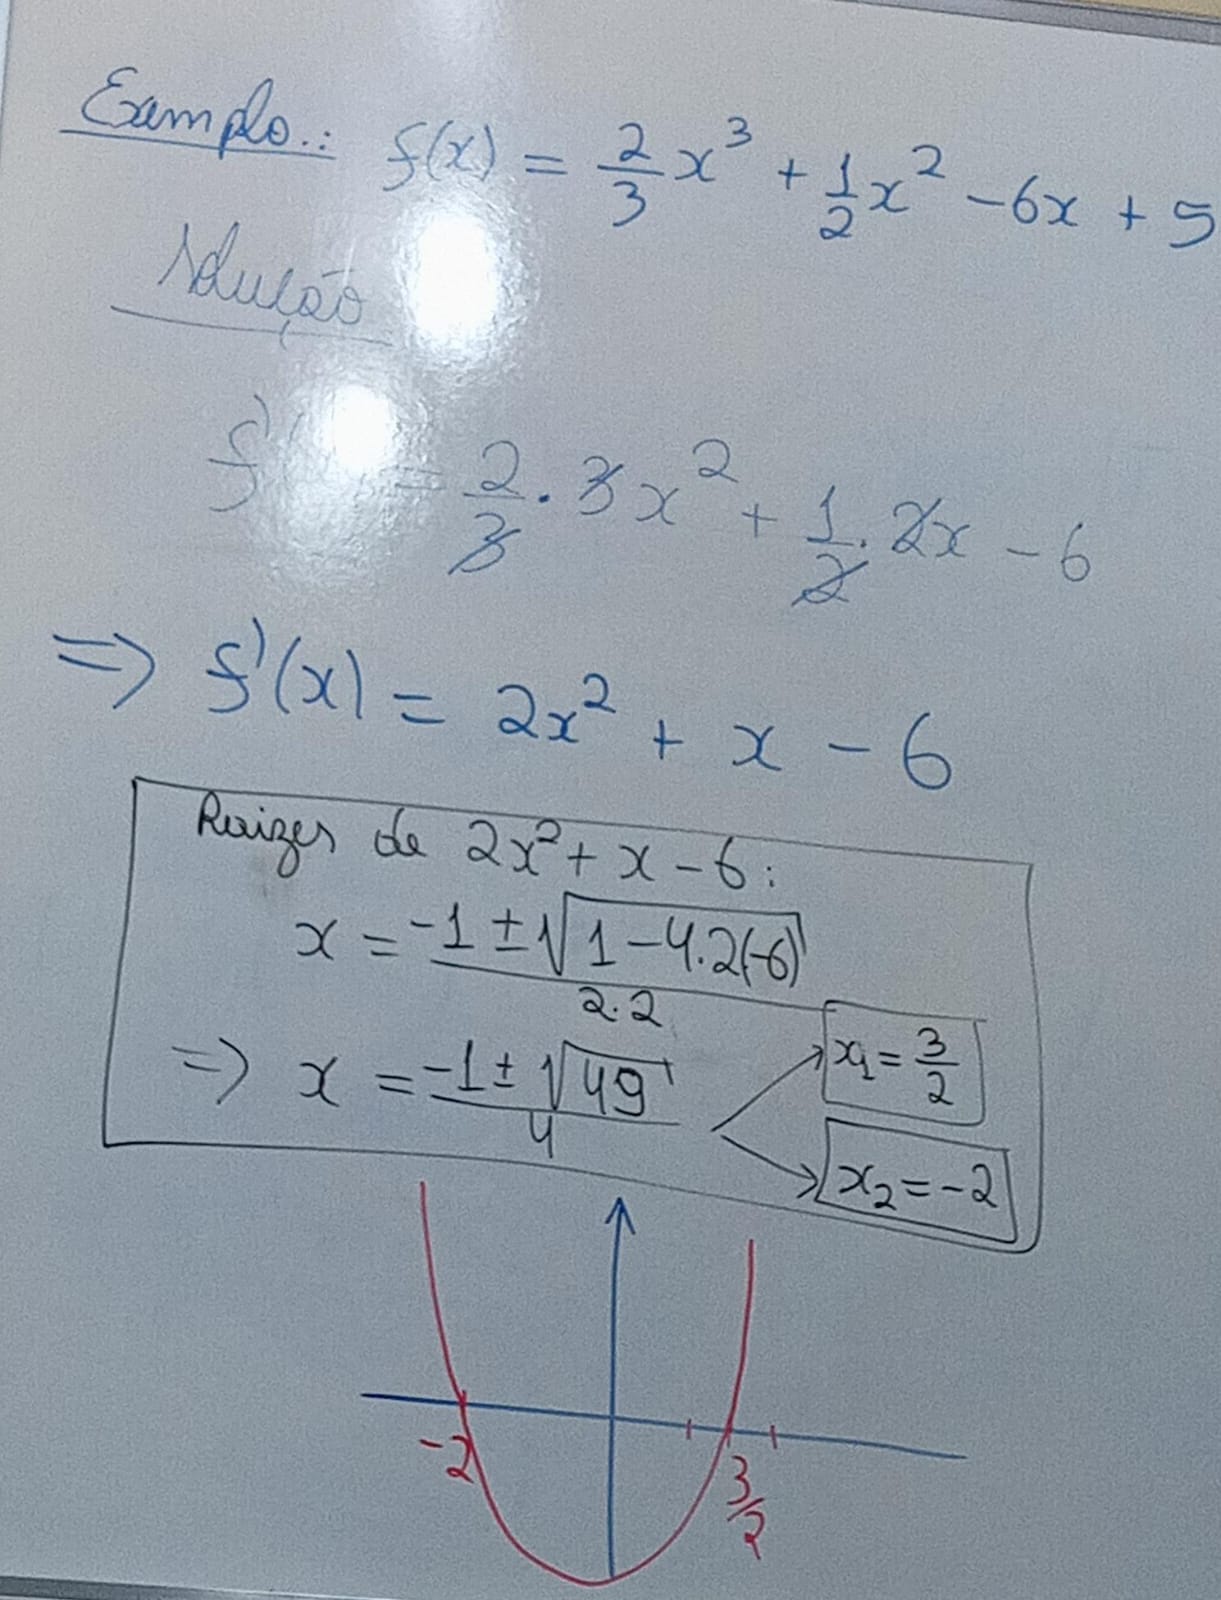 Exemplo.: f(x) = 2/3 x³ + 1/2 x² - 6x + 5
Solução
f'( = 2/3 · 3x² + 1/2 · 2x - 6
=> f'(x) = 2x² + x - 6
Raizes de 2x² + x - 6:
x = -1 ± √1 - 4.2(-6) / 2.2
=> x = -1 ± √49 / 4
x₁ = 3/2
x₂ = -2
-2
3/2